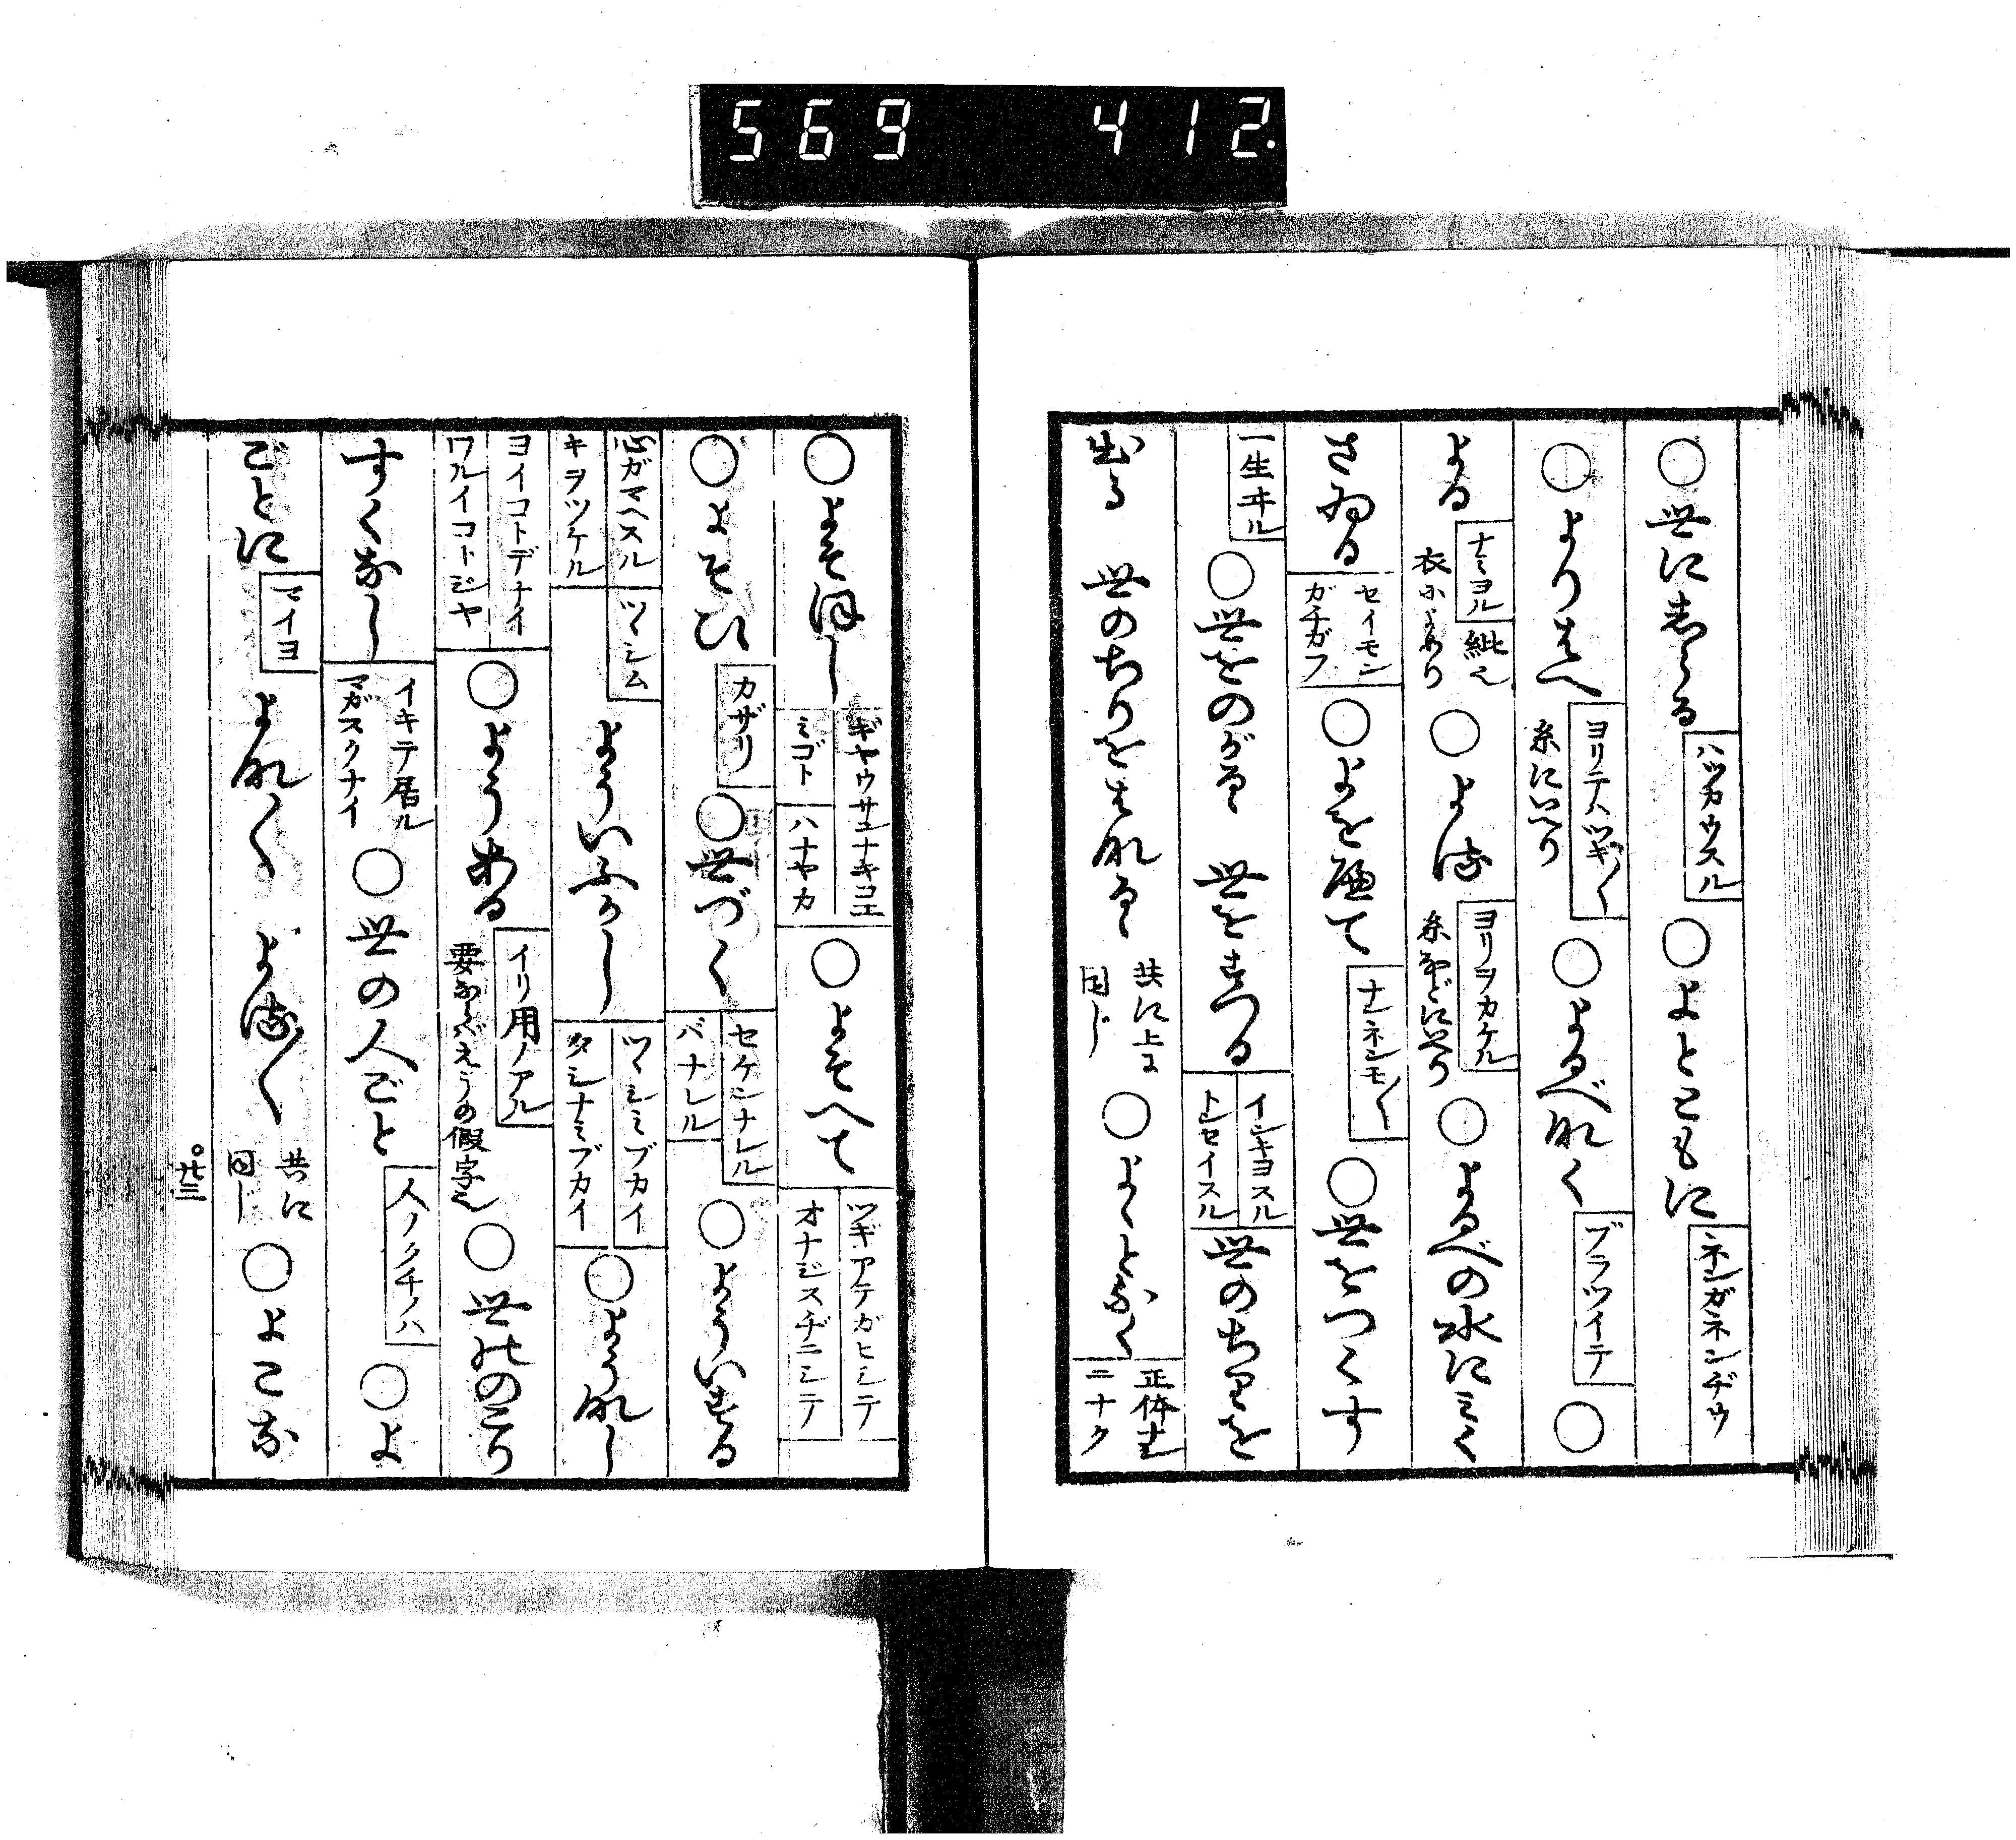 569 412.
○世にある ハツカウスル ○よとともに ネンガネンヂウ
○よりより ヨリテハツギ〱 糸にいへり ○よるべなく ブラツイテ ○
よる ナミヨル 紕也 衣にいへり ○よる ヨリヲカケル 糸などにいへり ○よるべの水にみく
さゐる セイモンガチガフ ○よを歴て ナンネンモ〱 ○世をつくす
一生ヰル ○世をのがるゝ 世をすつる インキヨスル トンセイスル 世のちりを
出る 世のちりをはなるゝ 共に上に同じ ○よゝとなく 正体ナシニナク
○よそほし ギヤウサンナキコエ ミゴト ハナヤカ ○よそへて ツギアテガヒシテ オナジスヂニシテ
○よそひ カザリ ○世づく セケンナレル バナレル ○よういする
心ガマヘスル キヲツケル ツヽシム よういふかし ツヽシミブカイ タシナミブカイ ○ようなし
ヨイコトデナイ ワルイコトジヤ ○ようある イリ用ノアル 要ならばえうの假字也 ○世にのこり
すくなし イキテ居ル マガスクナイ ○世の人ごと 人ノクチノハ ○よ
ごとに マイヨ よな〱 よる〱 共に同じ ○よこな
○廿三